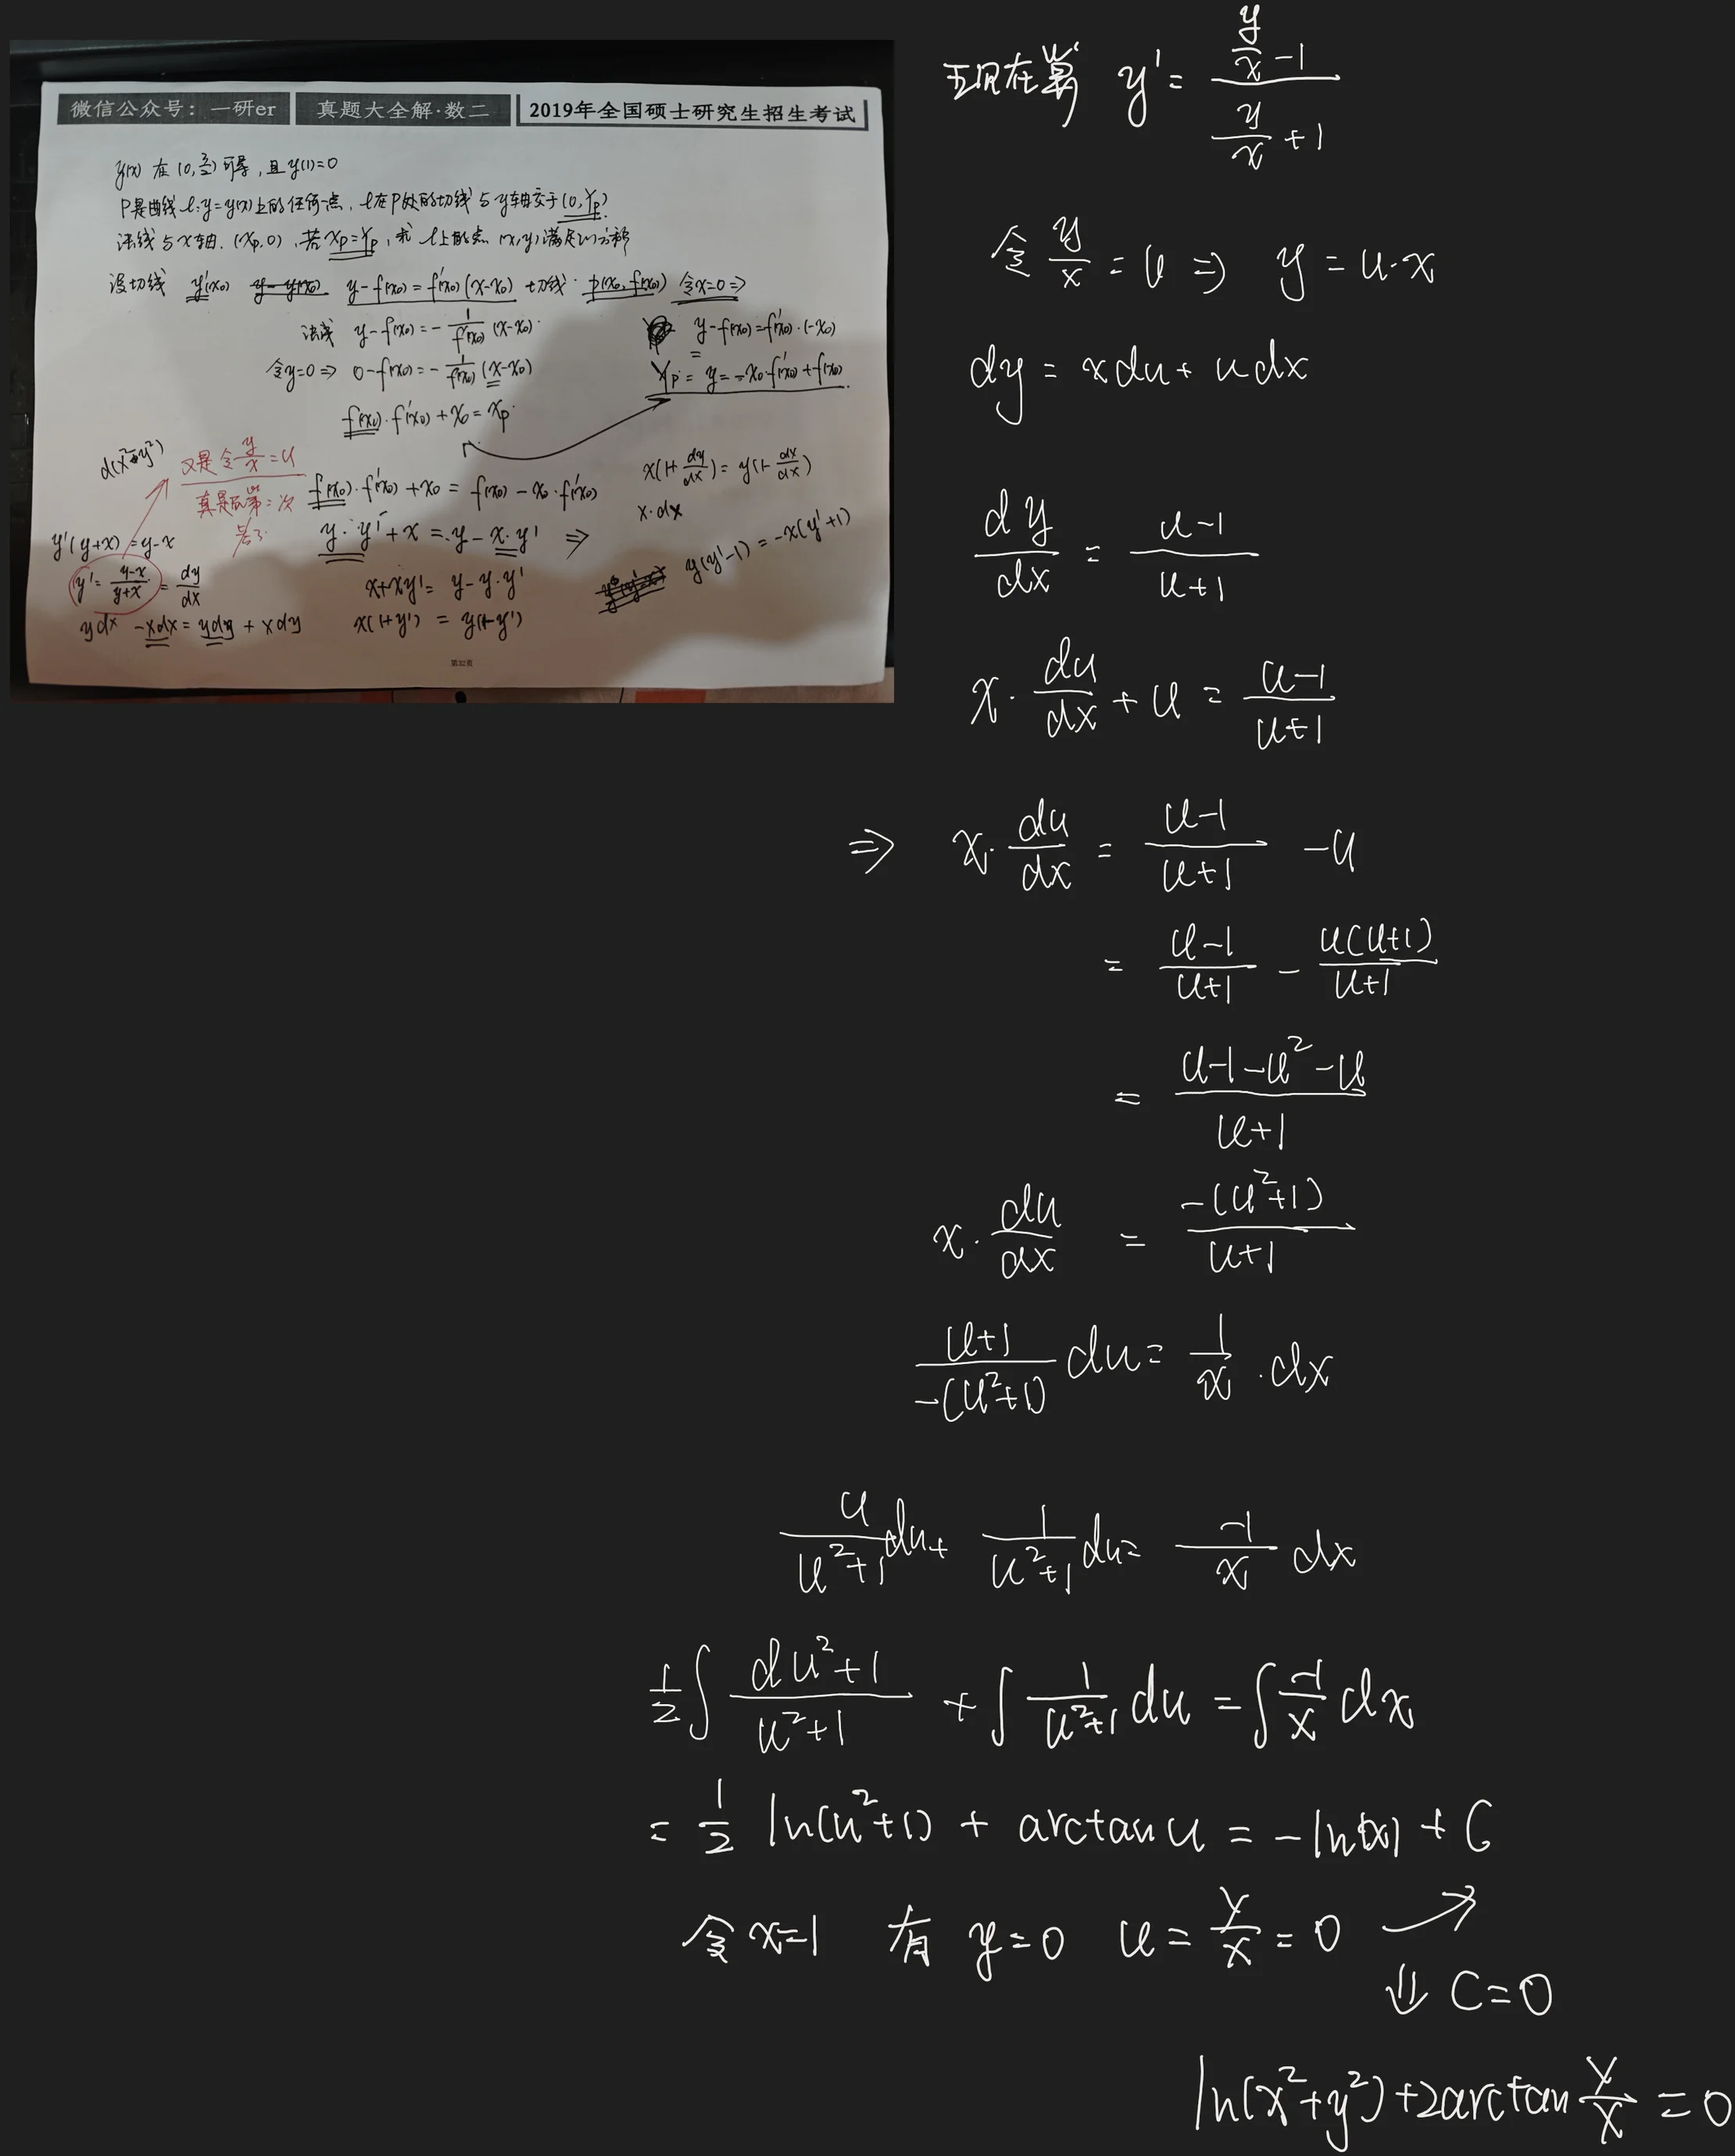 微信公众号：一研er 真题大全解·数二 2019年全国硕士研究生招生考试
y(x) 在 (0, 3/2) 可导，且 y(1)=0
P是曲线 l: y=y(x) 上的任何一点，l在P处的切线与y轴交于 (0, Yp)
法线与x轴. (Xp, 0) ,若 Xp=Yp，求 l上的点 (x,y) 满足的方程
设切线 y'(x₀) y-f(x₀)=f'(x₀)(x-x₀) 切线· P(x₀, f(x₀)) 令x=0 ⇒
法线 y-f(x₀)=-1/f'(x₀) (x-x₀)
y-f(x₀)=f'(x₀)·(-x₀)
令y=0 ⇒ 0-f(x₀)=-1/f'(x₀) (x-x₀)
Yp= y=-x₀·f'(x₀)+f(x₀)
f(x₀)·f'(x₀)+x₀=Xp
d(x²+y²)
又是令 y/x=u
真是
次
f(x₀)·f'(x₀)+x₀ = f(x₀)-x₀·f'(x₀)
x(1+dy/dx)=y(1-dx/dx)
x·dx
y'(y+x)=y-x
y·y'+x=y-x·y' ⇒
y(y'-1)=-x(y'+1)
y'=(y-x)/(y+x)=dy/dx
x+xy'=y-y·y'
ydx-xdx=ydy+xdy
x(1+y')=y(1-y')
第32页
现在算 y'=(y/x-1)/(y/x+1)
令 y/x=u ⇒ y=u·x
dy=xdu+udx
dy/dx=(u-1)/(u+1)
x·du/dx+u=(u-1)/(u+1)
⇒ x·du/dx=(u-1)/(u+1)-u
=(u-1)/(u+1)-u(u+1)/(u+1)
=(u-1-u²-u)/(u+1)
x·du/dx=-(u²+1)/(u+1)
(u+1)/-(u²+1) du=1/x·dx
u/(u²+1)du+1/(u²+1)du=-1/x dx
1/2∫(du²+1)/(u²+1)+∫1/(u²+1)du=∫-1/x dx
=1/2 ln(u²+1)+arctan u=-ln|x|+C
令x=1 有 y=0 u=y/x=0 ↗
⇓ C=0
ln(x²+y²)+2arctan y/x=0